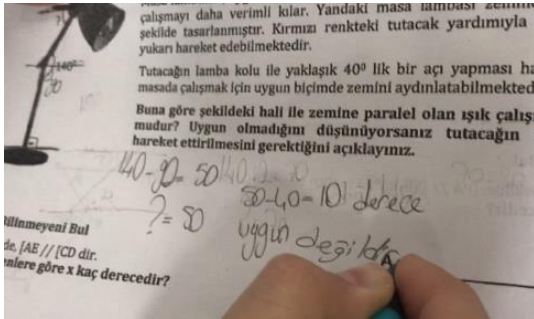 çalışmayı daha verimli kılar. Yandaki masa lambası
şekilde tasarlanmıştır. Kırmızı renkteki tutacak yardımıyla
yukarı hareket edebilmektedir.
Tutacağın lamba kolu ile yaklaşık 40⁰ lik bir açı yapması ha
masada çalışmak için uygun biçimde zemini aydınlatabilmekted
Buna göre şekildeki hali ile zemine paralel olan ışık çalış
mudur? Uygun olmadığını düşünüyorsanız tutacağın
hareket ettirilmesini gerektiğini açıklayınız.
140°
90
140-90= 50
50-40=10 derece
?= 50
uygun değildir
Bilinmeyeni Bul
de, [AE // [CD dir.
enlere göre x kaç derecedir?
A